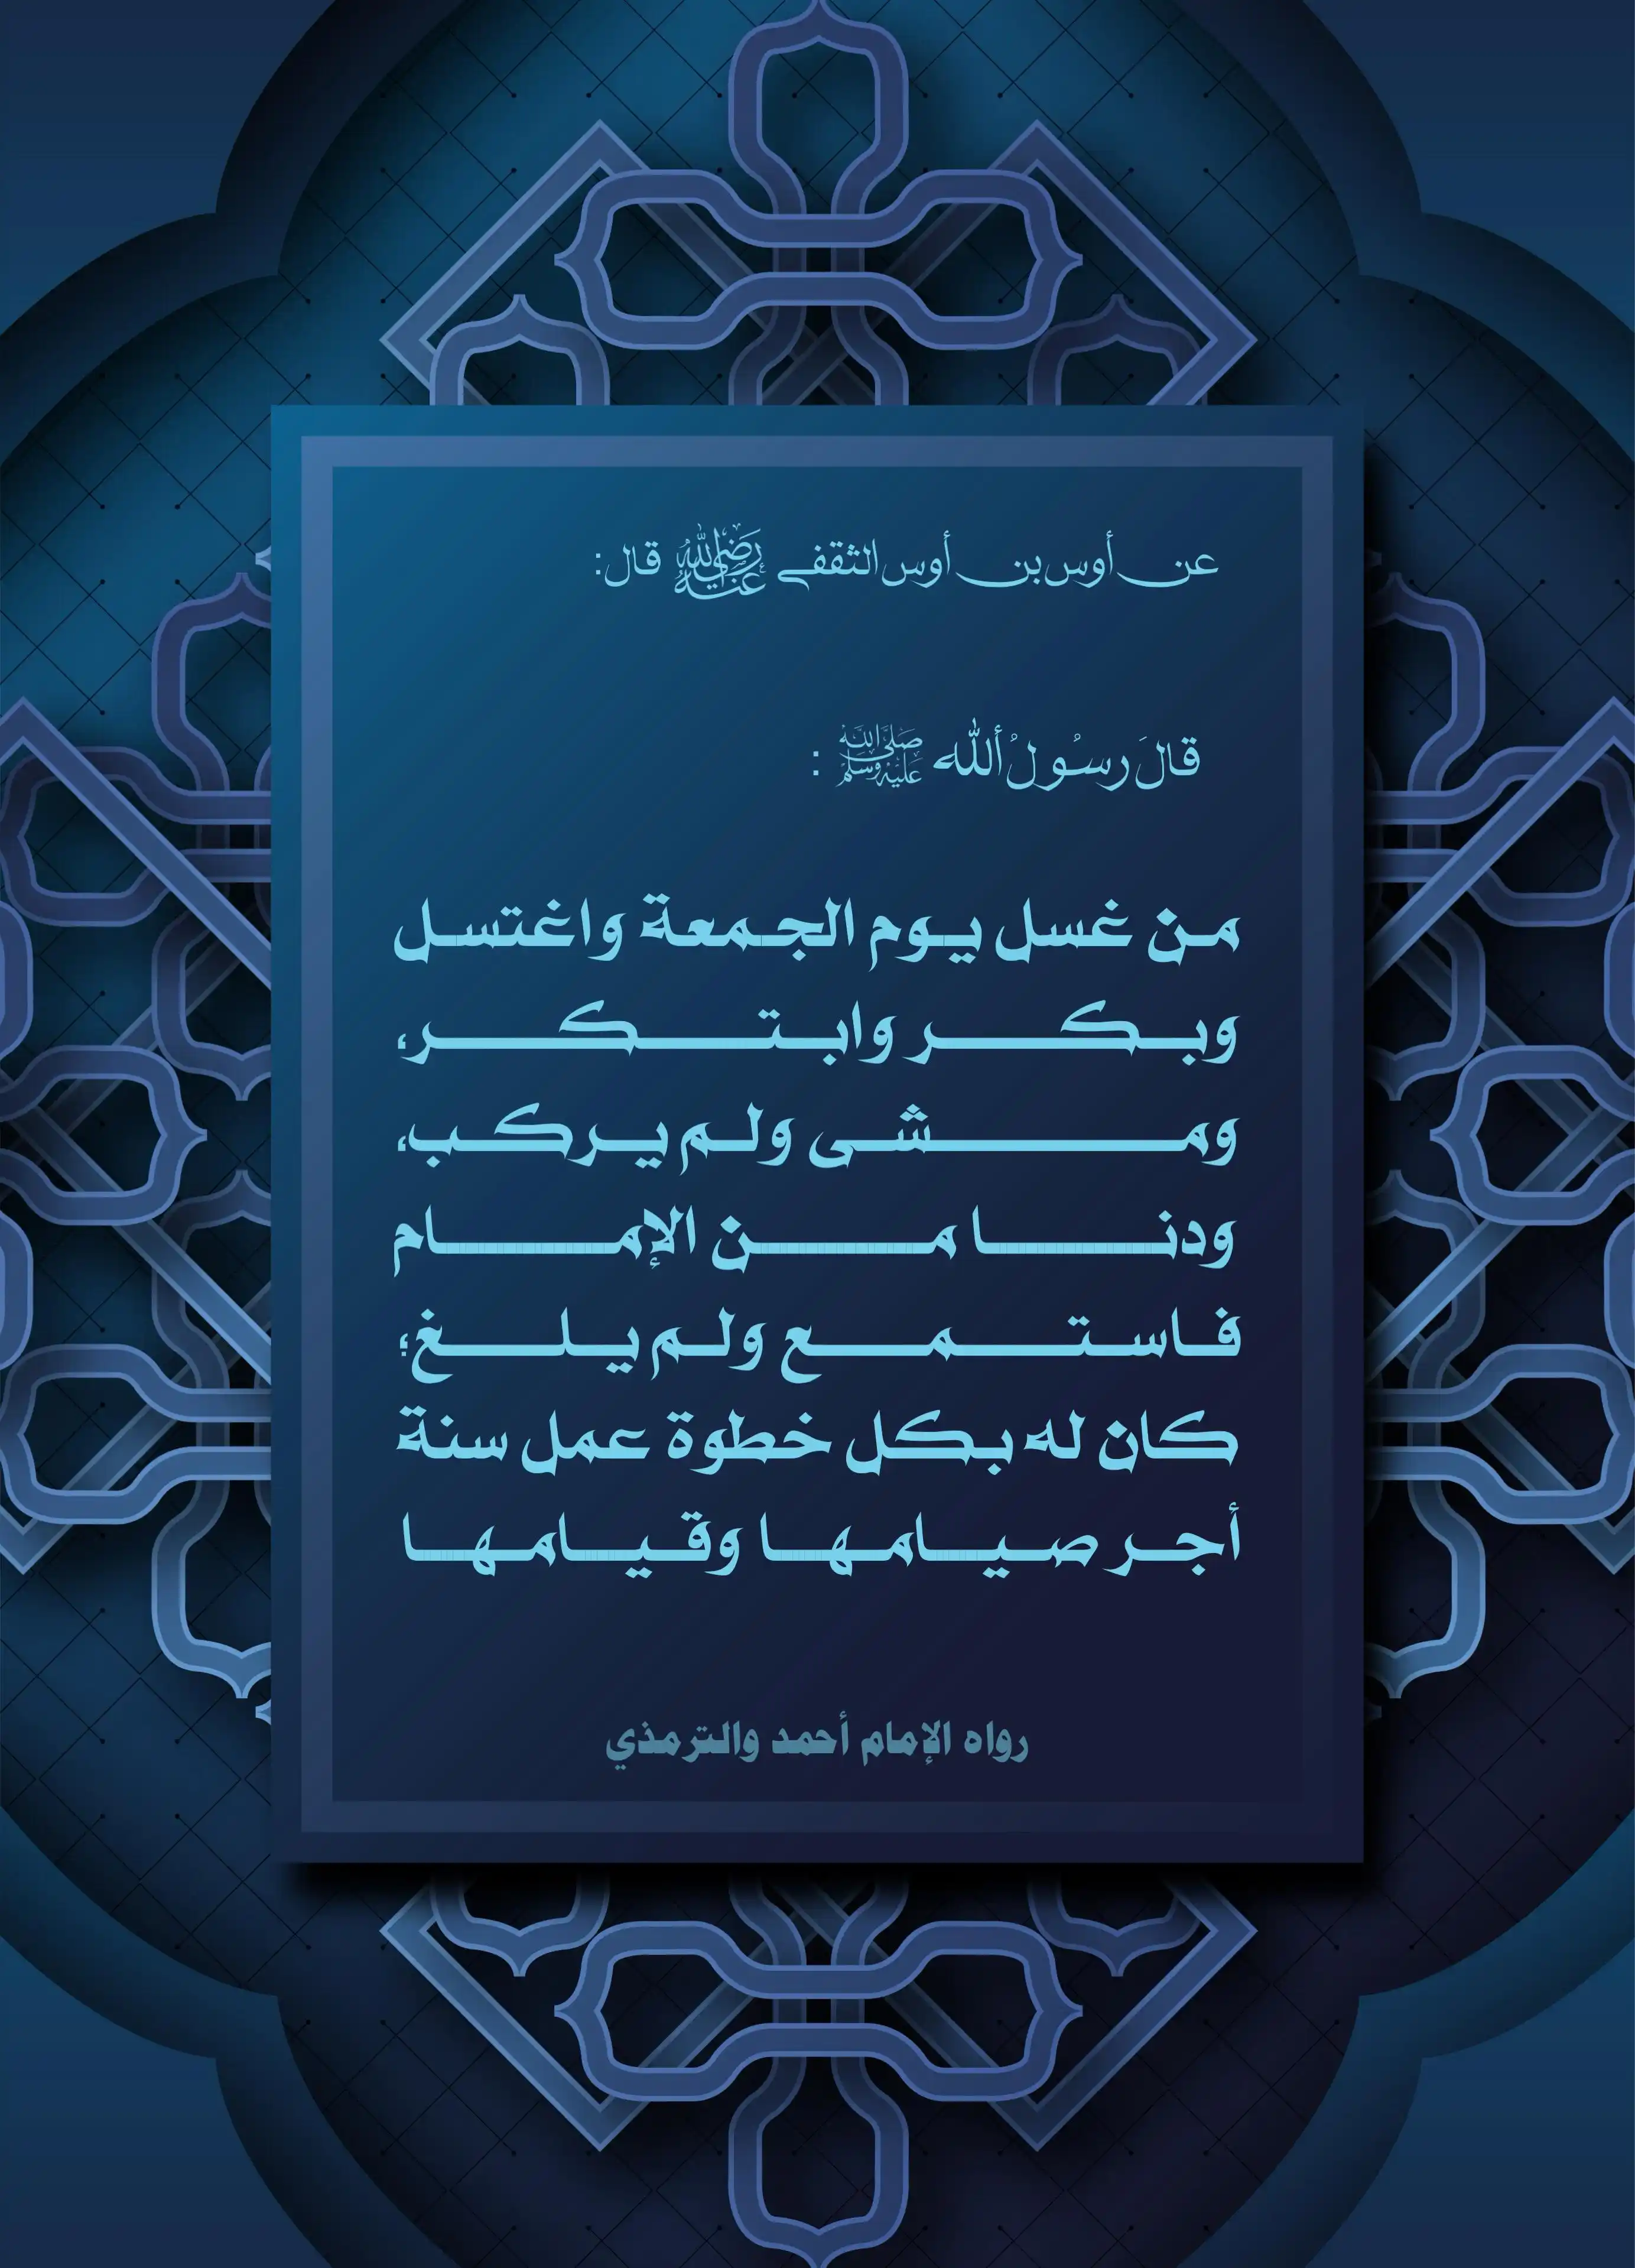 عن أوس بن أوس الثقفي رضي الله عنه قال:
قالَ رسُولُ ألله صلى الله عليه وسلم :
من غسل يوم الجمعة واغتسل
وبكر وابتكر،
ومشى ولم يركب،
ودنا من الإمام
فاستمع ولم يلغ؛
كان له بكل خطوة عمل سنة
أجر صيامها وقيامها
رواه الإمام أحمد والترمذي